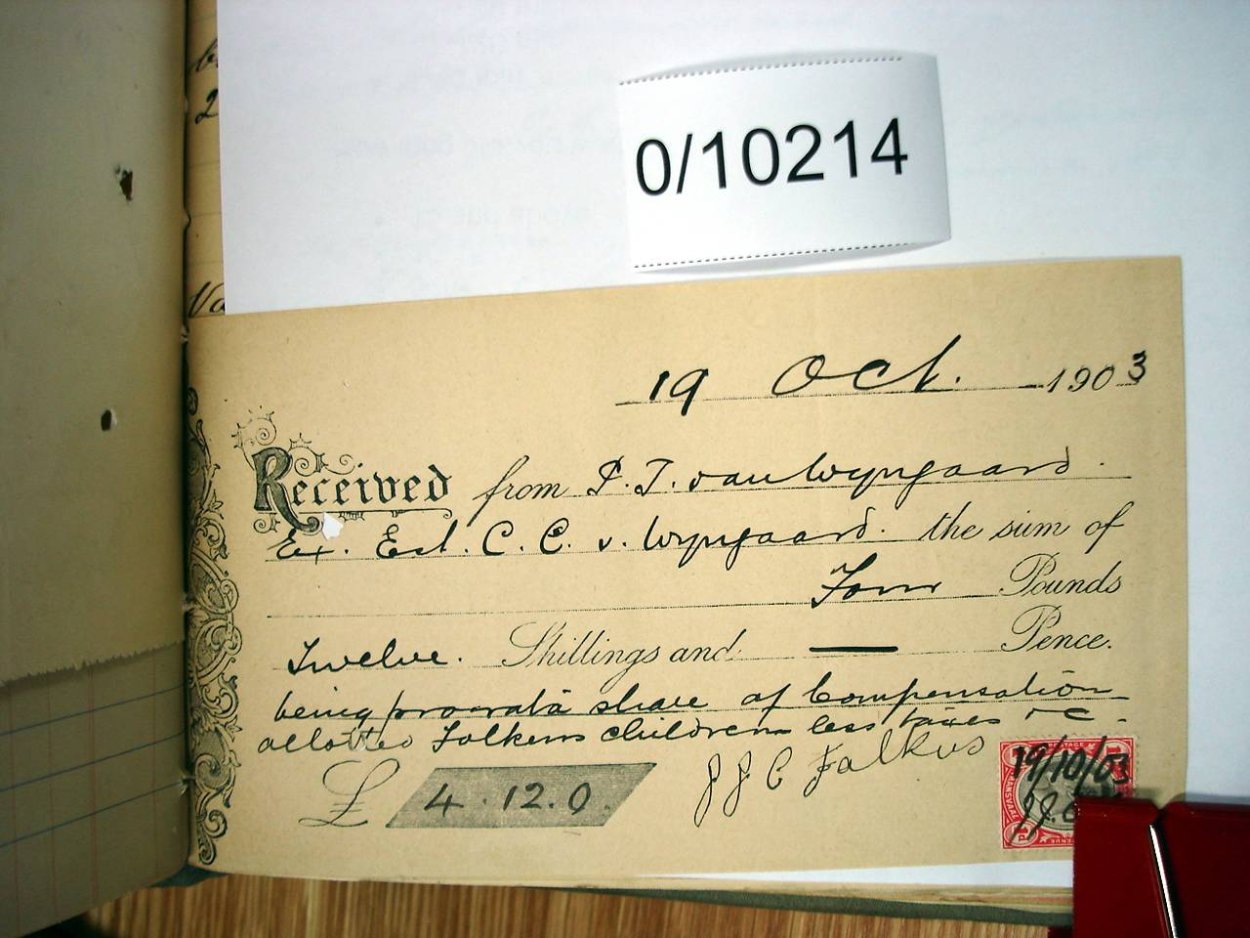 0/10214
19 Oct. 1903
Received from P. J. van Wyngaard.
Ex. Est. C. C. v. Wyngaard. the sum of
Four Pounds
Twelve. Shillings and — Pence.
being prorata share of Compensation
allotted children less taxes
£ 4.12.0. J J C Falkus
19/10/03